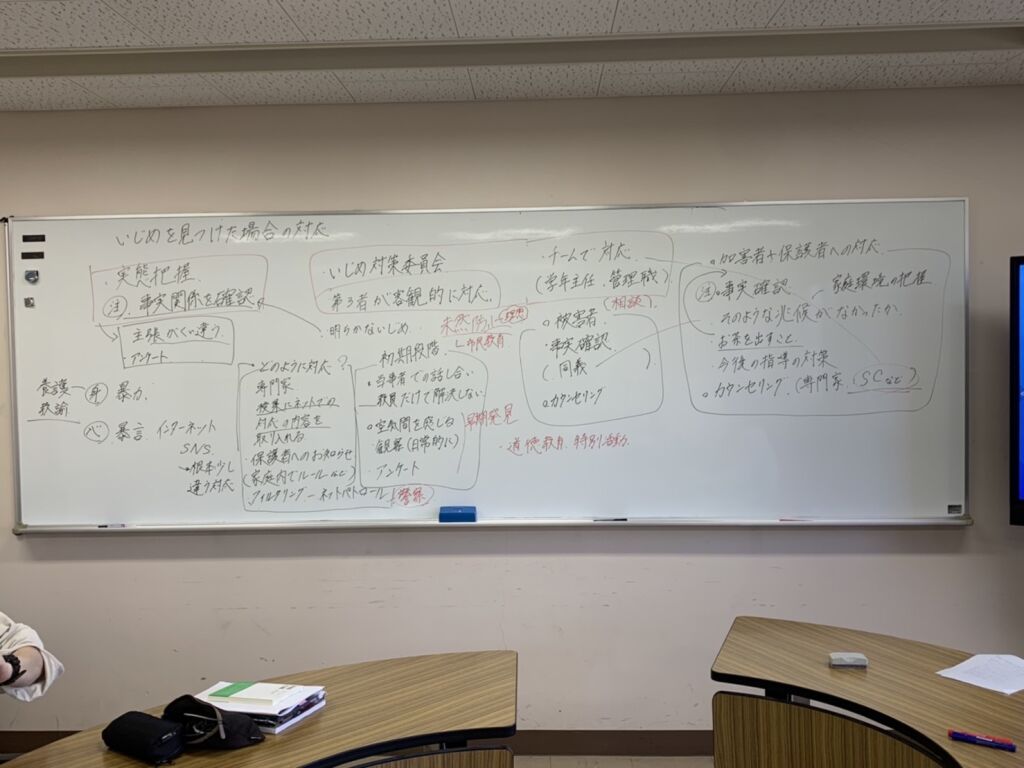 いじめを見つけた場合の対応
・実態把握
注 事実関係を確認
主張がくい違う
・アンケート
・いじめ対策委員会
第3者が客観的に対応
・チームで対応
(学年主任、管理職)
(相談)
明らかないじめ
未然防止
市民教育
養護
教諭
暴力
暴言 インターネット
SNS
→根本少し
違う対応
・どのように対応?
専門家
授業にネットでの
対応の内容を
取り入れる
・保護者へのお知らせ
(家庭内でルールなど)
・フィルタリングーネットパトロール
警察
初期段階
・当事者での話し合い
教員だけで解決しない
・空気間を感じる
・観察(日常的に)
・アンケート
早期発見
・道徳教育、特別活動
・被害者
・事実確認
(同義)
・カウンセリング
・加害者+保護者への対応
注・事実確認
家庭環境の把握
・そのような兆候がなかったか
・お茶を出すこと
・今後の指導の対策
・カウンセリング(専門家、SCなど)